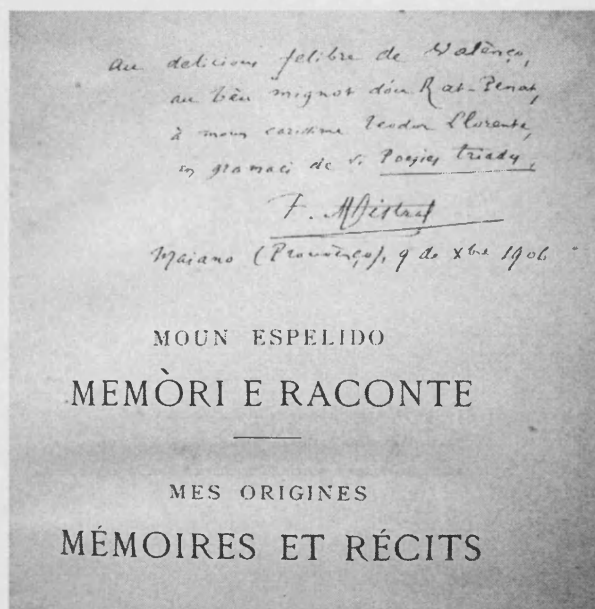 au delicious felibre de Valènço,
au bèu mignot dóu Rat-Penat,
à moun carissime Teodor Llorente,
en gramaci de si Poesies triades,
F. Mistral
Maiano (Prouvènço), 9 de Xbre 1906
MOUN ESPELIDO
MEMÒRI E RACONTE
MES ORIGINES
MÉMOIRES ET RÉCITS